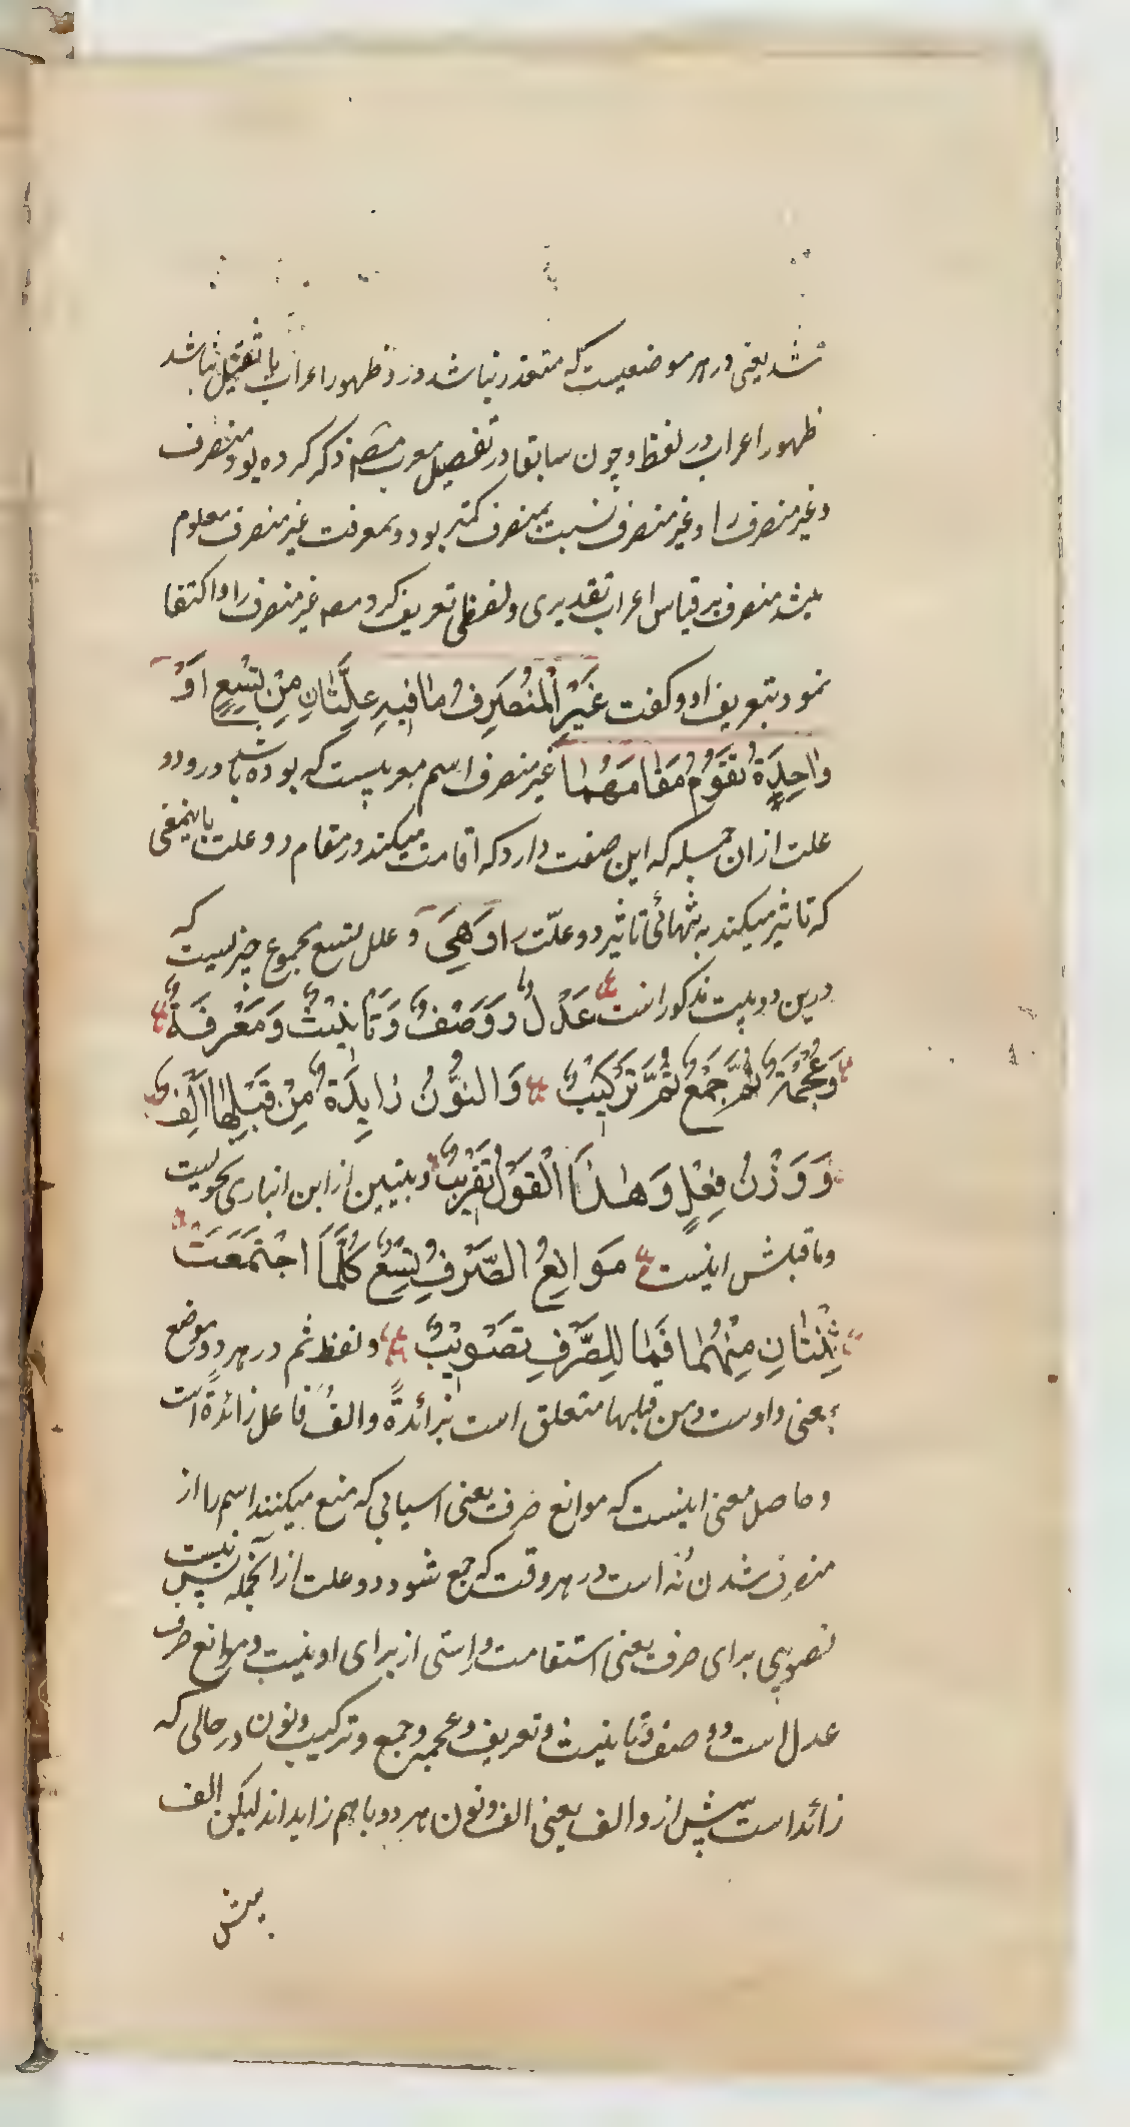 شد یعنی در هر موضعیست که متعذر نباشد درو ظهور اعراب یا ثقیل نباشد
ظهور اعراب در لفظ و چون سابقا در تفصیل معرب مصه ذکر کرده بود منصرف
و غیر منصرف را و غیر منصرف نسبت بمنصرف کمتر بود و بمعرفت غیر منصرف معلوم
میشد منصرف بر قیاس اعراب تقدیری و لفظی تعریف کرد مصه غیر منصرف را و اکتفا
نمود بتعریف او و گفت غَیْرُ الْمُنْصَرِفِ مَا فِیهِ عِلَّتَانِ مِنْ تِسْعٍ اَوْ
وَاحِدَةٌ تَقُوْمُ مَقَامَهُمَا غیر منصرف اسم معربیست که بوده باشد درو دو
علت از ان جمله که این صفت دارد که اقامت میکند در مقام دو علت باینمعنی
که تاثیر میکند به تنهائی تاثیر دو علّت را وَهِیَ و علل تسع مجموع چیزیست که
درین دو بیت مذکور است عَدْلٌ وَوَصْفٌ وَتَانِیْثٌ وَمَعْرِفَةٌ
وَعُجْمَةٌ ثُمَّ جَمْعٌ ثُمَّ تَرْکِیْبٌ وَالنُّوْنُ زَایِدَةٌ مِنْ قَبْلِهَا اَلِفٌ
وَوَزْنُ فِعْلٍ وَهٰذَا الْقَوْلُ تَقْرِیْبٌ و بیتین از ابن انباری نحویست
و ماقبلش اینست مَوَانِعُ الصَّرْفِ تِسْعٌ کُلَّمَا اجْتَمَعَتْ
ثِنْتَانِ مِنْهُمَا فَمَا لِلصَّرْفِ تَصْوِیْبٌ و لفظ ثم در هر دو موضع
بمعنی واوست و من قبلها متعلق است بزائدةً و الفٌ فاعل زائدةً است
و حاصل معنی اینست که موانع صرف یعنی اسبابی که منع میکنند اسم را از
منصرف شدن نُه است در هر وقت که جمع شود دو علت از آنجمله پس نیست
تصویبی برای صرف یعنی استقامت و راستی از برای او نیست و موانع صرف
عدل است و وصف و تانیث و تعریف و عجمه و جمع و ترکیب و نون در حالی که
زائد است پیش از و الف یعنی الف و نون هر دو با هم زاید اند لیکن الف
پیش